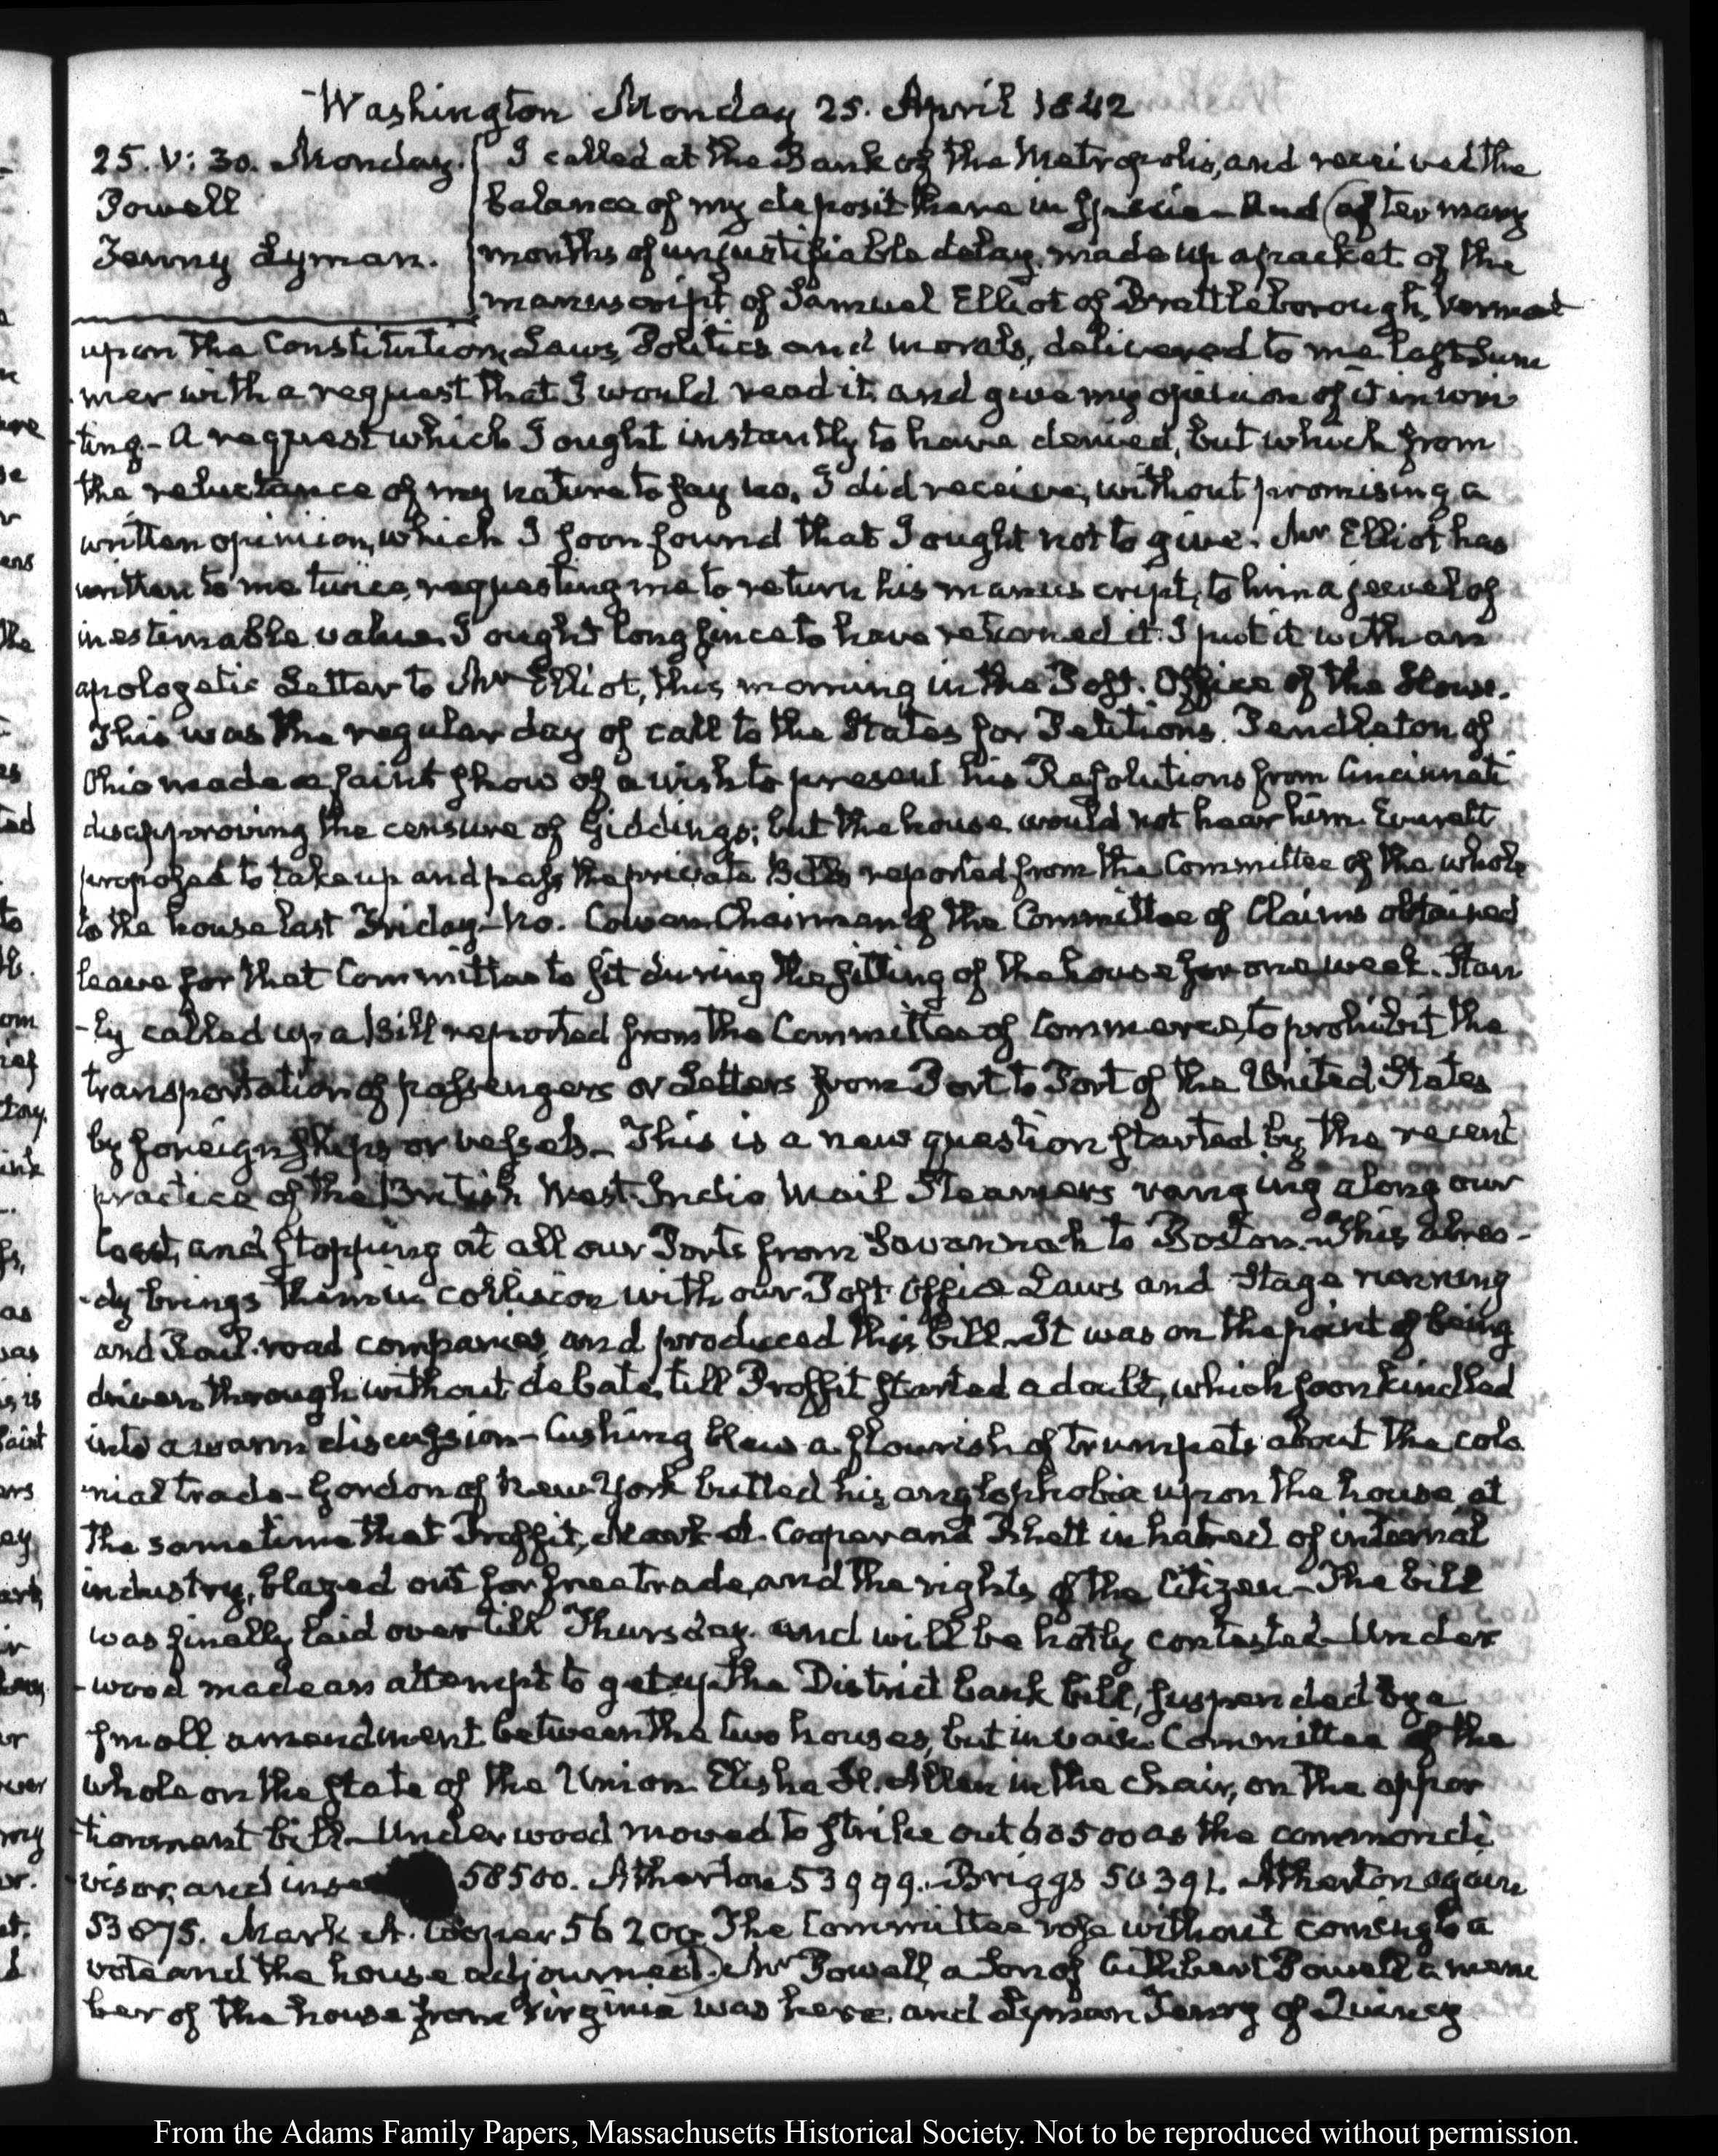 Washington Monday 25. April 1842
25. V: 30. Monday.
Powell
Tenny Lyman.
I called at the Bank of the Metropolis, and received the
balance of my deposit there in specie - And after many
months of unjustifiable delay, made up a packet of the
manuscript of Samuel Elliot of Brattleborough, Vermont
upon the Constitution, Laws, Politics and morals, delivered to me last Sum
mer with a request that I would read it, and give my opinion of it in wri
ting - A request which I ought instantly to have denied, but which from
the reluctance of my nature to say no, I did receive, without promising a
written opinion, which I soon found that I ought not to give. Mr Elliot has
written to me twice, requesting me to return his manuscript, to him a jewel of
inestimable value. I ought long since to have returned it. I put it with an
apologetic Letter to Mr Elliot, this morning in the Post-Office of the House.
This was the regular day of call to the States for Petitions. Pendleton of
Ohio made a faint show of a wish to present his Resolutions from Cincinnati
disapproving the censure of Giddings; but the house would not hear him. Everett
proposed to take up and pass the private Bills reported from the Committee of the whole
to the house last Friday - No. Cowen Chairman of the Committee of Claims obtained
leave for that Committee to sit during the sitting of the house for one week. Stan
-ly called up a bill reported from the Committee of Commerce, to prohibit the
transportation of passengers or Letters from Port to Port of the United States
by foreign ships or vessels - This is a new question started by the recent
practice of the British West-India Mail Steamers ranging along our
Coast, and stopping at all our Ports from Savannah to Boston. This alrea-
-dy brings them in collision with our Post-Office Laws and Stage running
and Rail-road companies, and produced this bill - It was on the point of being
driven through without debate, till Proffit started a doubt, which soon kindled
into a warm discussion - Cushing blew a flourish of trumpets about the colo
nial trade - Gordon of New-York butted his anglophobia upon the house, at
the same time that Proffit, Mark A. Cooper and Rhett in hatred of internal
industry, blazed out for free trade, and the rights of the Citizen - The bill
was finally laid over till Thursday. and will be hotly contested - Under
-wood made an attempt to get up the District bank bill, suspended by a
small amendment between the two houses, but in vain. Committee of the
whole on the state of the Union. Elisha H. Allen in the chair, on the appor
-tionment bill - Underwood moved to strike out 60500 as the common di
-visor, and inse 58500. Atherton 53999. Briggs 50391. Atherton again
53875. Mark A. Cooper 56200. The Committee rose without coming to a
vote and the house adjourned. Mr Powell, a Son of Cuthbert Powell a mem
ber of the house from Virginia was here, and Lyman Tenny of Quincy
From the Adams Family Papers, Massachusetts Historical Society. Not to be reproduced without permission.